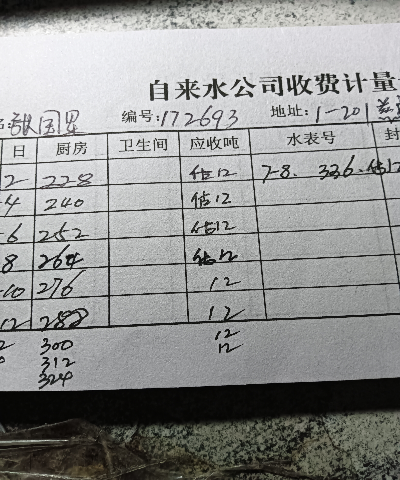 自来水公司收费计量
编号:172693 地址:1-201
日 厨房 卫生间 应收吨 水表号 封
2 228 估12 7-8. 336.估12
-4 240 估12
-6 252 估12
8 264 估12
-10 276 12
12 288 12
2 300 12
312 12
324